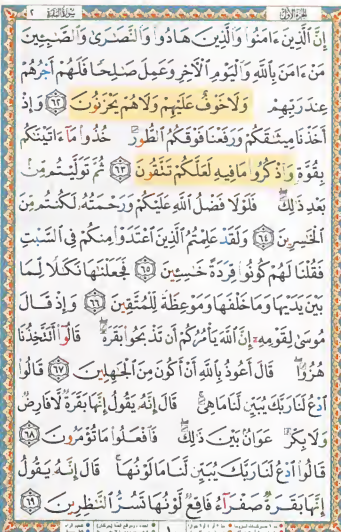 الجزء الأول سورة البقرة ٢
إِنَّ ٱلَّذِينَ ءَامَنُوا۟ وَٱلَّذِينَ هَادُوا۟ وَٱلنَّصَٰرَىٰ وَٱلصَّٰبِـِٔينَ
مَنْ ءَامَنَ بِٱللَّهِ وَٱلْيَوْمِ ٱلْءَاخِرِ وَعَمِلَ صَٰلِحًا فَلَهُمْ أَجْرُهُمْ
عِندَ رَبِّهِمْ وَلَا خَوْفٌ عَلَيْهِمْ وَلَا هُمْ يَحْزَنُونَ ٦٢ وَإِذْ
أَخَذْنَا مِيثَٰقَكُمْ وَرَفَعْنَا فَوْقَكُمُ ٱلطُّورَ خُذُوا۟ مَآ ءَاتَيْنَٰكُم
بِقُوَّةٍ وَٱذْكُرُوا۟ مَا فِيهِ لَعَلَّكُمْ تَتَّقُونَ ٦٣ ثُمَّ تَوَلَّيْتُم مِّنۢ
بَعْدِ ذَٰلِكَ ۖ فَلَوْلَا فَضْلُ ٱللَّهِ عَلَيْكُمْ وَرَحْمَتُهُۥ لَكُنتُم مِّنَ
ٱلْخَٰسِرِينَ ٦٤ وَلَقَدْ عَلِمْتُمُ ٱلَّذِينَ ٱعْتَدَوْا۟ مِنكُمْ فِى ٱلسَّبْتِ
فَقُلْنَا لَهُمْ كُونُوا۟ قِرَدَةً خَٰسِـِٔينَ ٦٥ فَجَعَلْنَٰهَا نَكَٰلًا لِّمَا
بَيْنَ يَدَيْهَا وَمَا خَلْفَهَا وَمَوْعِظَةً لِّلْمُتَّقِينَ ٦٦ وَإِذْ قَالَ
مُوسَىٰ لِقَوْمِهِۦٓ إِنَّ ٱللَّهَ يَأْمُرُكُمْ أَن تَذْبَحُوا۟ بَقَرَةً ۖ قَالُوٓا۟ أَتَتَّخِذُنَا
هُزُوًا ۖ قَالَ أَعُوذُ بِٱللَّهِ أَنْ أَكُونَ مِنَ ٱلْجَٰهِلِينَ ٦٧ قَالُوا۟
ٱدْعُ لَنَا رَبَّكَ يُبَيِّن لَّنَا مَا هِىَ ۚ قَالَ إِنَّهُۥ يَقُولُ إِنَّهَا بَقَرَةٌ لَّا فَارِضٌ
وَلَا بِكْرٌ عَوَانٌۢ بَيْنَ ذَٰلِكَ ۖ فَٱفْعَلُوا۟ مَا تُؤْمَرُونَ ٦٨
قَالُوا۟ ٱدْعُ لَنَا رَبَّكَ يُبَيِّن لَّنَا مَا لَوْنُهَا ۚ قَالَ إِنَّهُۥ يَقُولُ
إِنَّهَا بَقَرَةٌ صَفْرَآءُ فَاقِعٌ لَّوْنُهَا تَسُرُّ ٱلنَّٰظِرِينَ ٦٩